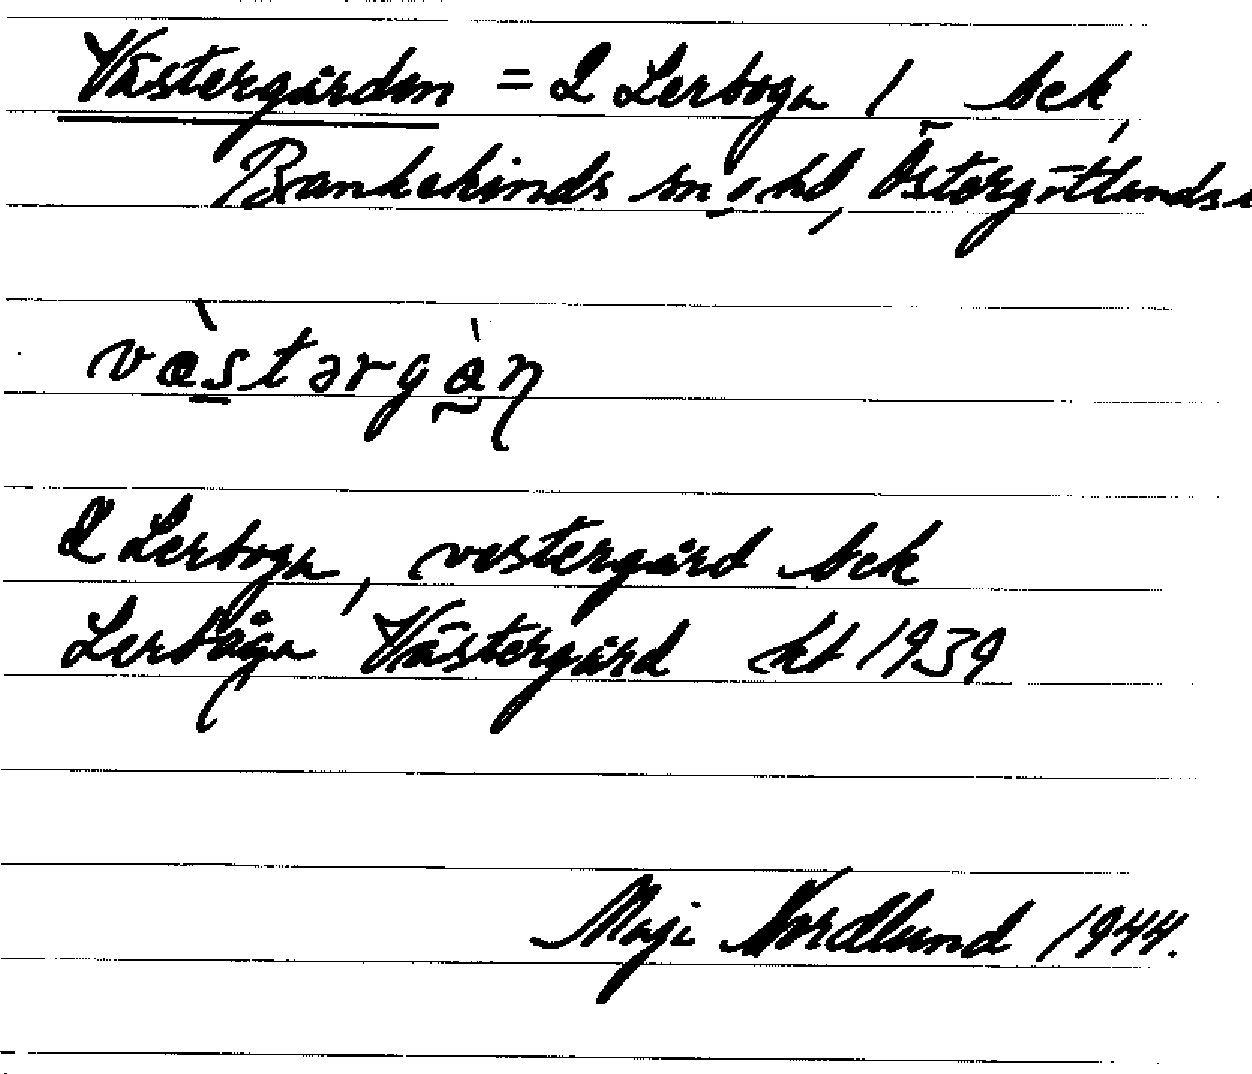 Västergården = 2 Lerboga 1 bck,
Bankekinds sn o hd, Östergötlands
væstərgån
2 Lerboga, vestergård bck
Lerbåga Västergård kt 1939
Maji Nordlund 1944.